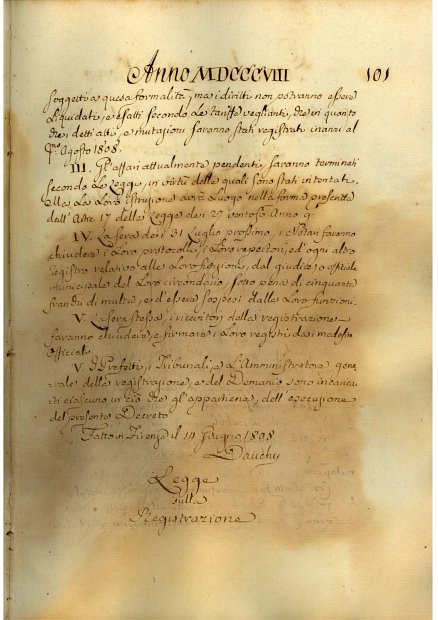 Anno MDCCCVIII 101
soggetti a questa formalità, ma i diritti non potranno essere
liquidati, e esatti secondo le tariffe veglianti, che in quanto
che i detti atti, e mutazioni saranno stati registrati inanzi al
Pmo Agosto 1808.
III. Gli affari attualmente pendenti saranno terminati
secondo le Legge, in virtù delle quali sono stati intentati.
Ma la loro istruzione avrà luogo nella forma presentta
dall'Artic. 17 della Legge dei 27 ventoso Anno 9.
IV. La sera dei 31 Luglio prossimo, i Notari faranno
chiudere i loro protocolli, i loro repertori, ed ogni altro
registro relativo alle loro funzioni, dal giudice o ofiziale
municipale del loro circondario, sotto pena di cinquanta
franchi di multa, e d'essere sospesi dalle loro funzioni.
V. La sera stessa, i ricevitori della registrazione
faranno chiudere, e firmare i loro registri dai medesi
officiali.
V. I Prefetti, i Tribunali, e l'Amministratore gene
rale della registrazione, e del Demanio sono incarica
ti ciascuno in ciò che gl'appartiene, dell'esecuzione
del presente Decreto
Fatto in Firenze il 14 Giugno 1808.
Dauchy
Legge
sulla
Registrazione